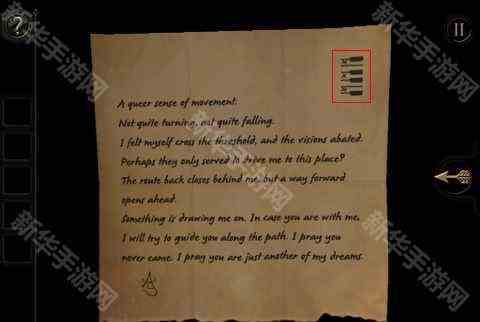 A queer sense of movement.
Not quite turning, not quite falling.
I felt myself cross the threshold, and the visions abated.
Perhaps they only served to drive me to this place?
The route back closes behind me, but a way forward
opens ahead.
Something is drawing me on. In case you are with me,
I will try to guide you along the path. I pray you
never came. I pray you are just another of my dreams.
?
新华手游网
新华手游网
新华手游网
新华手游网
新华手游网